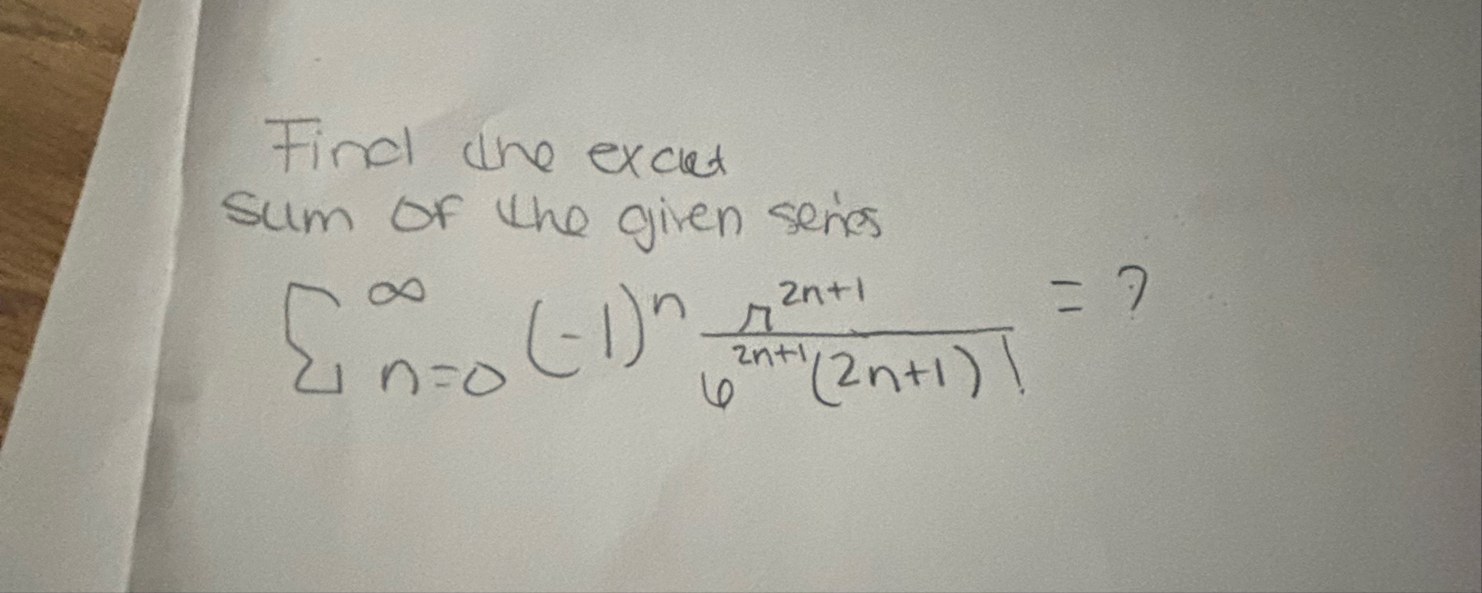 Find the exact
sum of the given series
∑^∞_{n=0} (-1)^n π^{2n+1} / 6^{2n+1} (2n+1)! = ?